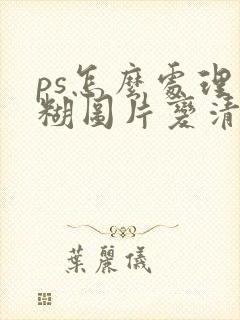 ps怎麼處理
糊圖片變清
葉麗儀